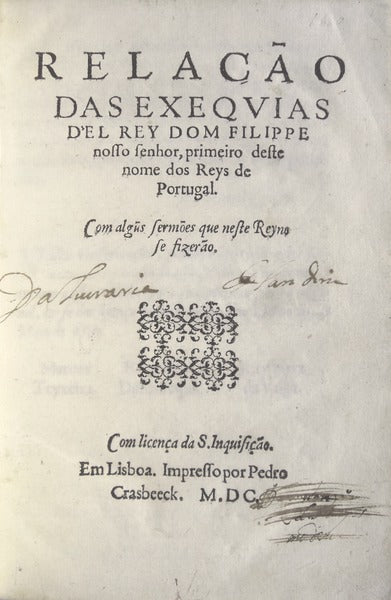 RELAÇÃO
DAS EXEQVIAS
D'EL REY DOM FILIPPE
nosso senhor, primeiro deste
nome dos Reys de
Portugal.
Com algũs sermões que neste Reyno
se fizerão.
Da Livraria
Com licença da S. Inquisição.
Em Lisboa. Impresso por Pedro
Crasbeeck. M.DC.